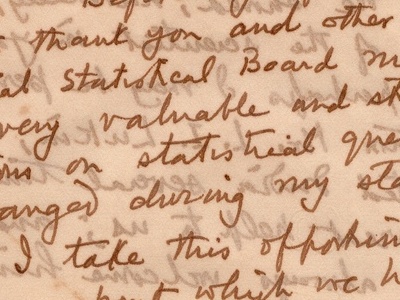 Befor
thank you and other
al Statistical Board m
very valuable and st
ions on statistical que
anged during my sta
I take this opportun
but which we h